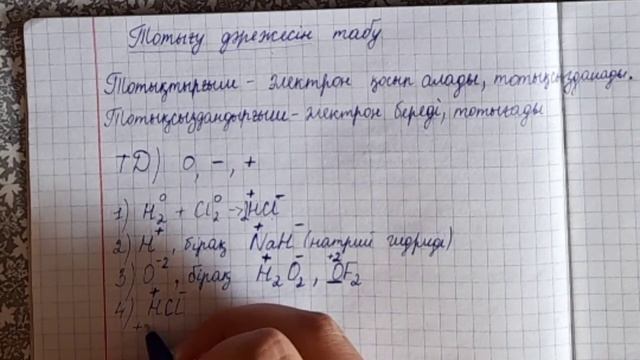 Тотығу дәрежесін табу
Тотықтырғыш - электрон қосып алады, тотықсызданады.
Тотықсыздандырғыш - электрон береді, тотығады
ТД) 0, -, +
1) H₂⁰ + Cl₂⁰ → 2H⁺Cl⁻
2) H⁺, бірақ Na⁺H⁻ (натрий гидриді)
3) O⁻², бірақ H⁺₂O⁻₂, O⁺²F₂
4) H⁺Cl⁻